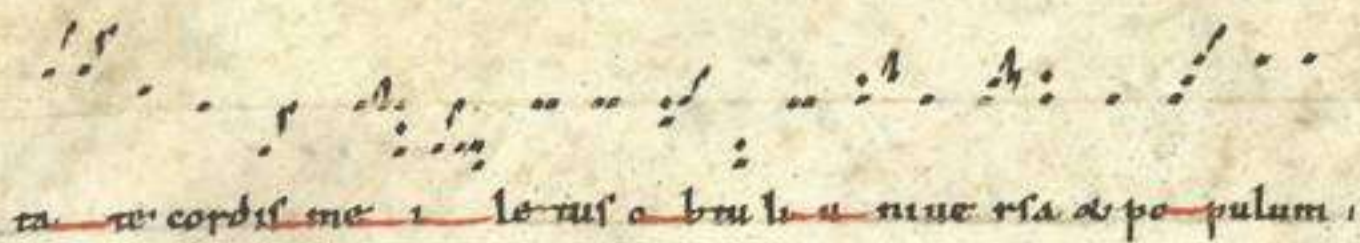 ta te cordis me i letus o btu li u niue rsa & po pulum